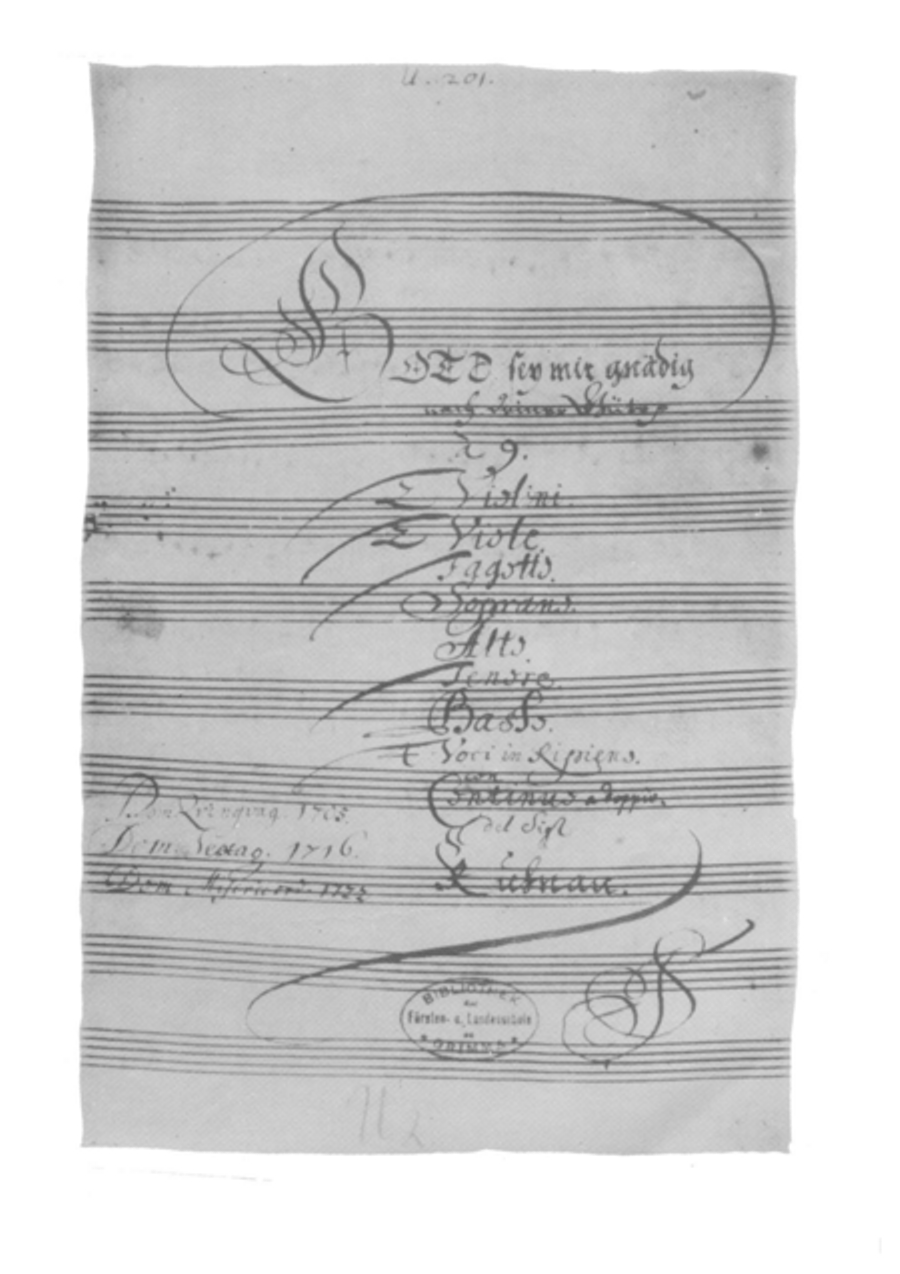 U. 201.
GOTT sey mir gnädig
nach deiner Güte
à 9.
2 Violini.
2 Viole.
Fagotto.
Soprano.
Alto
Tenore.
Basso.
4 Voci in Ripieno.
con
Continuo a doppio.
del Sigl
Kuhnau.
Dom 1705.
Dom. Sexag. 1716.
Dom Misericord.
BIBLIOTHEK
der
Fürsten- u. Landesschule
zu
GRIMMA